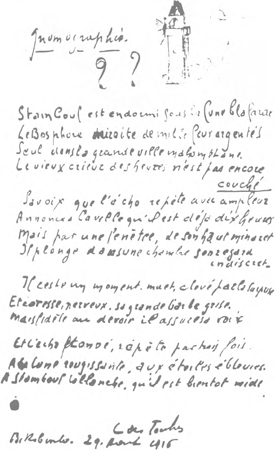 ? ?
Stamboul est endormi sous la lune blafarde
Le Bosphore miroite de mille feux argentés
Seul dans la grande ville mahométane
Le vieux crieur des heures n'est pas encore
couché
Sa voix que l'écho répète avec ampleur
Annonce à la ville qu'il est déjà dix heures
Mais par une fenêtre, de son haut minaret
Il plonge dans une chambre son regard
indiscret
Il reste un moment, muet, cloué par la surprise
Et caresse, nerveux, sa grande barbe grise
Mais fidèle au devoir il assure sa voix
Et l'écho étonné, répète par trois fois
A la lune rougissante, aux étoiles éblouies
A Stamboul la blanche, qu'il est bientôt midi
29 1916